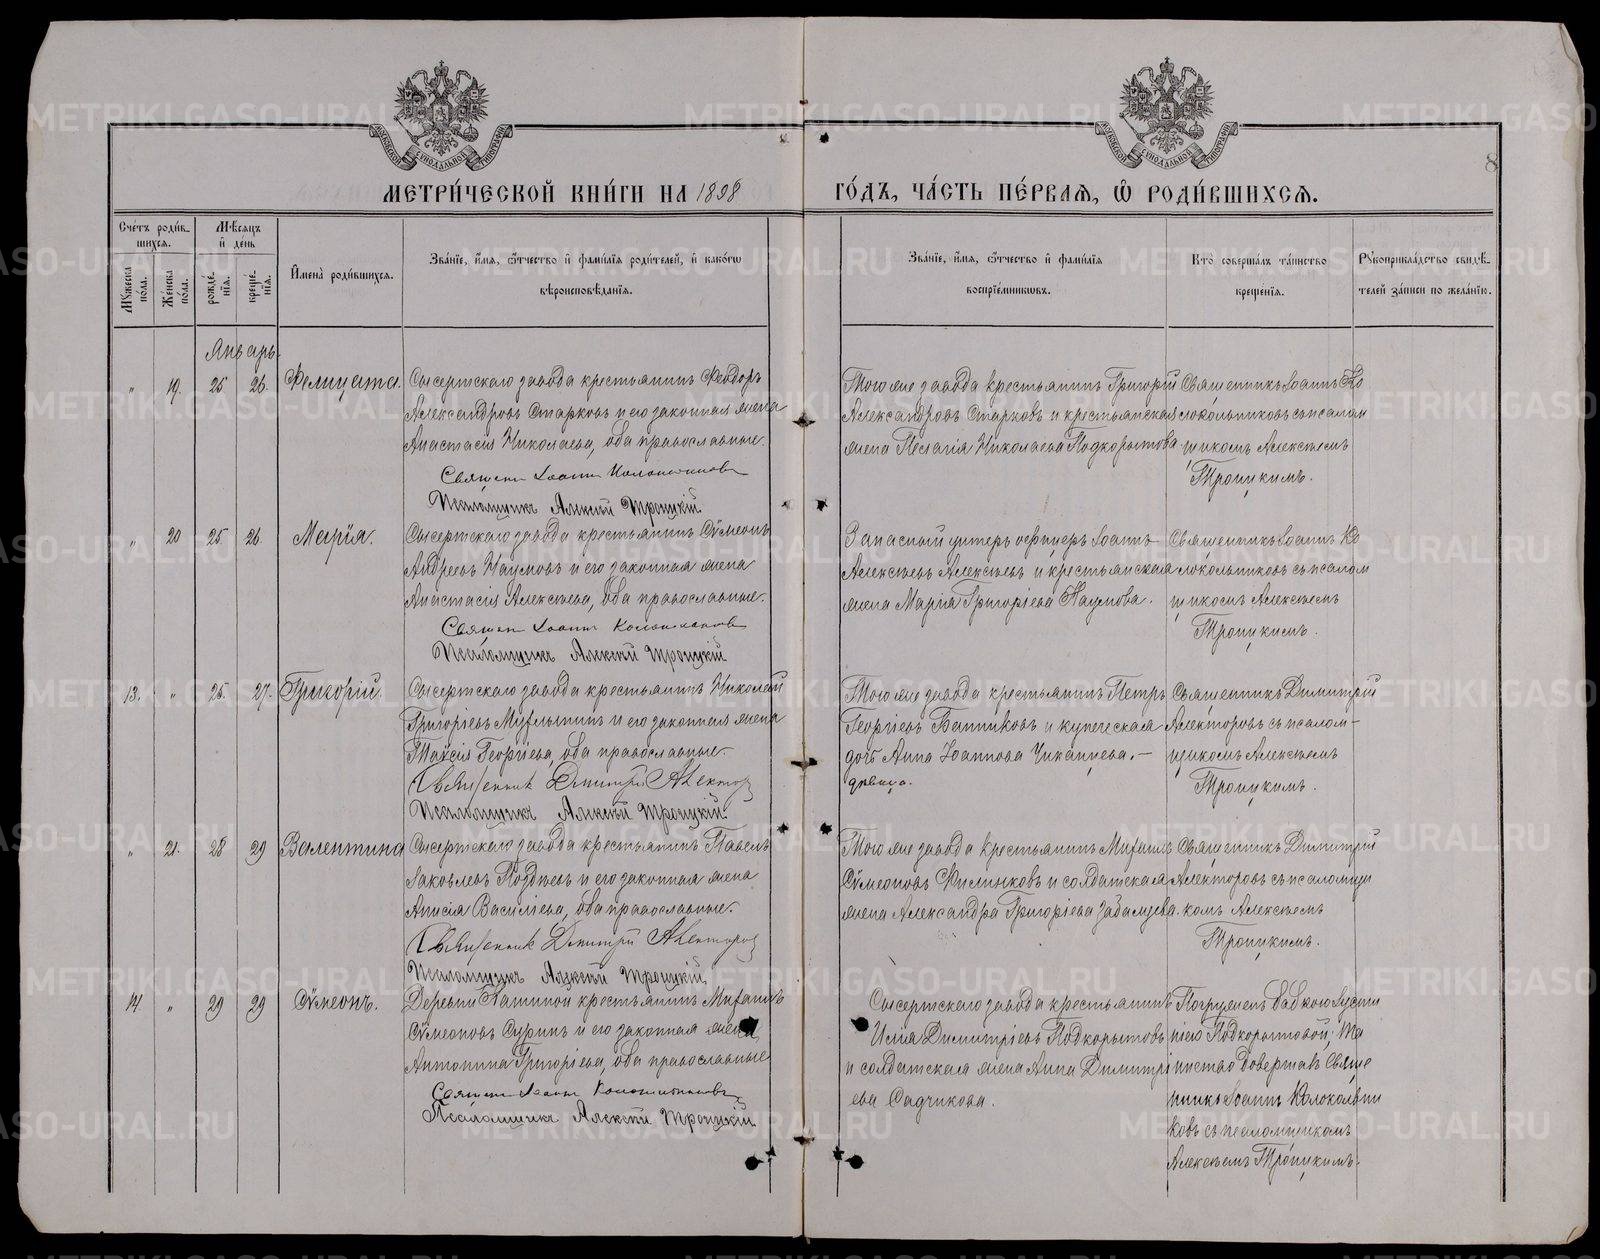 МЕТРИ́ЧЕСКОЙ КНИ́ГИ НА 1898
ГО́ДЪ, ЧА́СТЬ ПЕ́РВАѦ, Ѽ РОДИ́ВШИХСѦ.
8
Сче́тъ роди́в-
шихсѧ.
Мѣ́сѧцъ
и҆ де́нь
Мꙋ́жеска по́ла.
Же́нска по́ла.
рожде́-
нїѧ.
креще́-
нїѧ.
И҆мена̀ роди́вшихсѧ.
Зва́нїе, и҆́мѧ, ѻ҆́тчество и҆ фами́лїѧ роди́телей, и҆ како́гѡ
вѣроисповѣ́данїѧ.
Зва́нїе, и҆́мѧ, ѻ҆́тчество и҆ фами́лїѧ
воспрїе́мникѡвъ.
Кто̀ соверша́лъ та́инство
креще́нїѧ.
Рꙋкоприкла́дство свидѣ́-
телей за́писи по жела́нїю.
Январь.
" 19. 25 26. Фелицата.
Сысертскаго завода крестьянинъ Ѳеодоръ
Александровъ Старковъ и его законная жена
Анастасія Николаева, оба православные.
Священ Іоаннъ Колокольниковъ
Псаломщикъ Алексѣй Троицкій.
Того же завода крестьянинъ Григорій
Александровъ Старковъ и крестьянская
жена Пелагія Николаева Подкорытова.
Священникъ Іоаннъ Ко
локольниковъ съ псалом
щикомъ Алексѣемъ
Троицкимъ.
" 20 25. 26. Марія.
Сысертскаго завода крестьянинъ Сѵмеонъ
Андреевъ Наумовъ и его законная жена
Анастасія Алексѣева, оба православные.
Священ Іоаннъ Колокольниковъ
Псаломщикъ Алексѣй Троицкій
Запасный унтеръ офицеръ Іоаннъ
Алексѣевъ Алексѣевъ и крестьянская
жена Марія Григоріева Наумова.
Священникъ Іоаннъ Ко
локольниковъ съ псалом
щикомъ Алексѣемъ
Троицкимъ.
13. " 25. 27. Григорій.
Сысертскаго завода крестьянинъ Николай
Григоріевъ и его законная жена
Таисія Георгіева, оба православные.
Священникъ Димитрій Алекторовъ
Псаломщикъ Алексѣй Троицкій.
Того же завода крестьянинъ Петръ
Георгіевъ и купеческая
дочь Анна Іоаннова Чиканцева.—
дѣвица.
Священникъ Димитрій
Алекторовъ съ псалом-
щикомъ Алексѣемъ
Троицкимъ.
" 21. 28 29 Валентина
Сысертскаго завода крестьянинъ Павелъ
Іаковлевъ Поздѣевъ и его законная жена
Анисія Василіева, оба православные.
Священникъ Димитрій Алекторовъ
Псаломщикъ Алексѣй Троицкій.
Того же завода крестьянинъ Михаилъ
Сѵмеоновъ Филинковъ и солдатская
жена Александра Григоріева
Священникъ Димитрій
Алекторовъ съ псаломщи
комъ Алексѣемъ
Троицкимъ.
14. " 29 29 Сѵмеонъ.
Деревни крестьянинъ Михаилъ
Сѵмеоновъ Суринъ и его законная жена
Антонина Григоріева, оба православные
Священ Іоаннъ Колокольниковъ
Псаломщикъ Алексѣй Троицкій
Сысертскаго завода крестьянинъ
Илія Димитріевъ Подкорытовъ
и солдатская жена Анна Димитрі
ева Садчикова.
Погруженъ бабкою Іусти
ніею Подкорытовой; Та
инство довершалъ Свяще
нникъ Іоаннъ Колокольни
ковъ съ псаломщикомъ
Алексѣемъ Троицкимъ.
METRIKI.GASO-URAL.RU